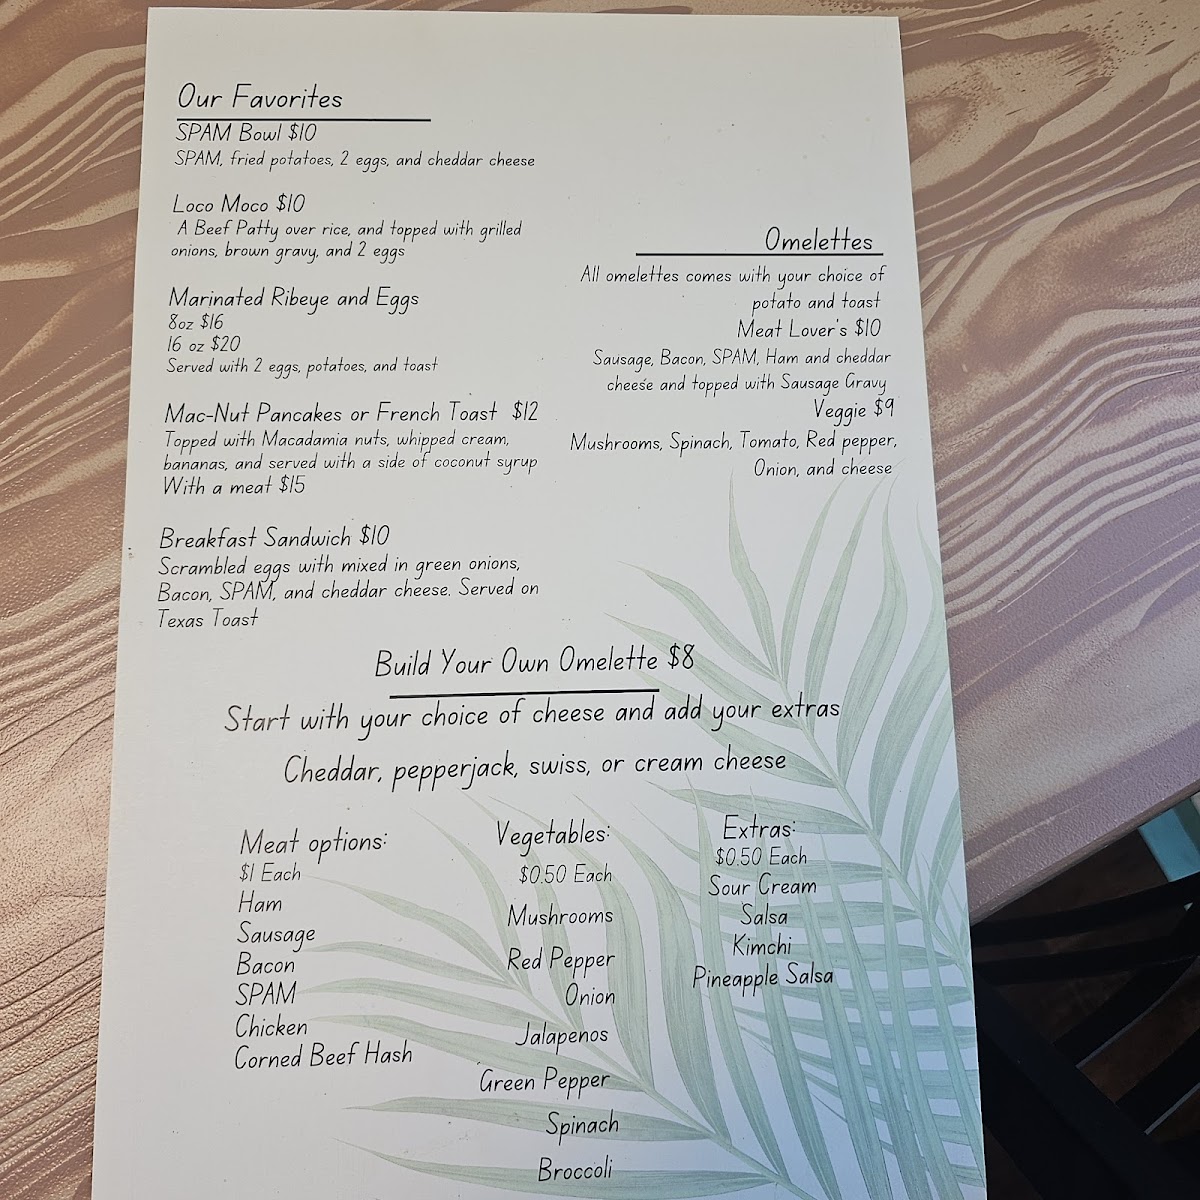 Our Favorites
SPAM Bowl $10
SPAM, fried potatoes, 2 eggs, and cheddar cheese
Loco Moco $10
A Beef Patty over rice, and topped with grilled
onions, brown gravy, and 2 eggs
Marinated Ribeye and Eggs
8oz $16
16 oz $20
Served with 2 eggs, potatoes, and toast
Mac-Nut Pancakes or French Toast $12
Topped with Macadamia nuts, whipped cream,
bananas, and served with a side of coconut syrup
With a meat $15
Breakfast Sandwich $10
Scrambled eggs with mixed in green onions,
Bacon, SPAM, and cheddar cheese. Served on
Texas Toast
Omelettes
All omelettes comes with your choice of
potato and toast
Meat Lover's $10
Sausage, Bacon, SPAM, Ham and cheddar
cheese and topped with Sausage Gravy
Veggie $9
Mushrooms, Spinach, Tomato, Red pepper,
Onion, and cheese
Build Your Own Omelette $8
Start with your choice of cheese and add your extras
Cheddar, pepperjack, swiss, or cream cheese
Meat options:
$1 Each
Ham
Sausage
Bacon
SPAM
Chicken
Corned Beef Hash
Vegetables:
$0.50 Each
Mushrooms
Red Pepper
Onion
Jalapenos
Green Pepper
Spinach
Broccoli
Extras:
$0.50 Each
Sour Cream
Salsa
Kimchi
Pineapple Salsa